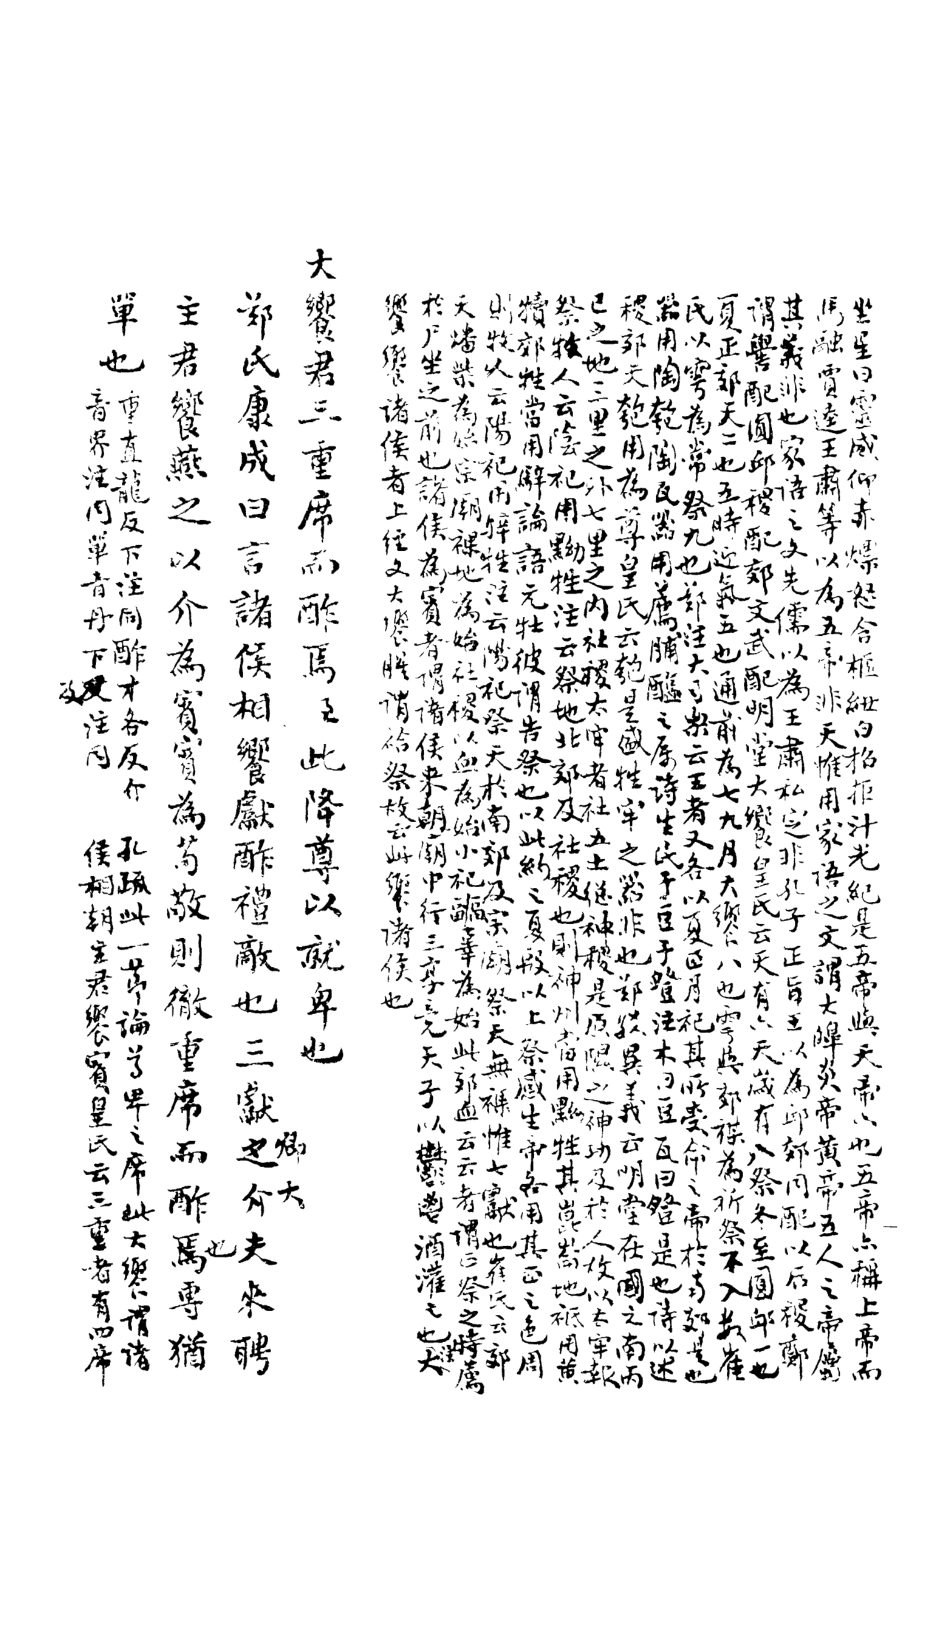 坐星曰靈威仰赤熛怒含樞紐白招拒汁光紀是五帝與天帝六也五帝亦稱上帝而
馬融賈逵王肅等以為五帝非天惟用家語之文謂大皞炎帝黃帝五人之帝屬
其義非也家語之文先儒以為王肅私定非孔子正旨王以為郊丘同配以后稷鄭
謂嚳配圓邱稷配郊文武配明堂大饗皇氏云天有六天歲有八祭冬至圓邱一也
夏正郊天二也五時迎氣五也通前為七九月大饗八也雩與郊禖為祈祭不入數崔
氏以雩為常祭九也鄭注大司樂云王者又各以夏正月祀其所受命之帝於南郊是也
器用陶匏陶瓦器用薦脯醢之屬詩生民于豆于登注木曰豆瓦曰登是也詩以述
稷郊天匏用為尊皇氏云匏是盛牲牢之器非也鄭駁異義云明堂在國之南丙
巳之地三里之外七里之內社稷太牢者社五土總神稷是原隰之神功及於人故以太牢報
祭牧人云陰祀用黝牲注云祭地北郊及社稷也則神州當用黝牲其崑崙地祗用黃
犢郊牲當用騂論語元牡彼謂告祭也以此約之夏殷以上祭感生帝各用其正之色周
則牧人云陽祀用騂牲注云陽祀祭天於南郊及宗廟祭天無祼惟七獻也崔氏云郊
天燔柴為始宗廟祼地為始社稷以血為始小祀疈辜為始此郊血云云者謂正祭之時薦
於尸坐之前也諸侯為賓者謂諸侯來朝廟中行三享竟天子以鬱鬯酒灌之也云大
饗饗諸侯者上經文大饗腥謂祫祭故云此饗諸侯也
大饗君三重席而酢焉三此降尊以就卑也
鄭氏康成曰言諸侯相饗獻酢禮敵也三獻卿大之介夫來聘
主君饗燕之以介為賓賓為苟敬則徹重席而酢焉也專猶
單也
重直龍反下注同酢才各反介
音界注同單音丹下及注同
孔疏此一節論尊卑之席此大饗謂諸
侯相朝主君饗賓皇氏云三重者有四席